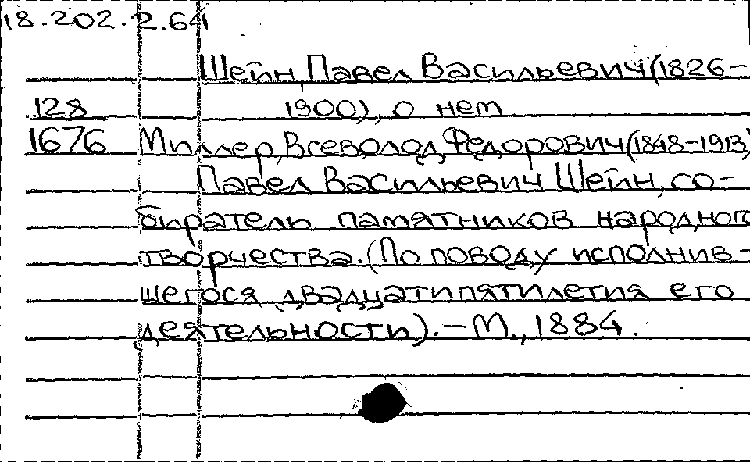 18.202.2.64
Шейн, Павел Васильевич (1826-
128 1900), о нем
1676 Миллер, Всеволод Федорович (1848-1913)
Павел Васильевич Шейн, со-
биратель памятников народного
творчества. (По поводу исполнив-
шегося двадцатипятилетия его
деятельности). - М., 1884.